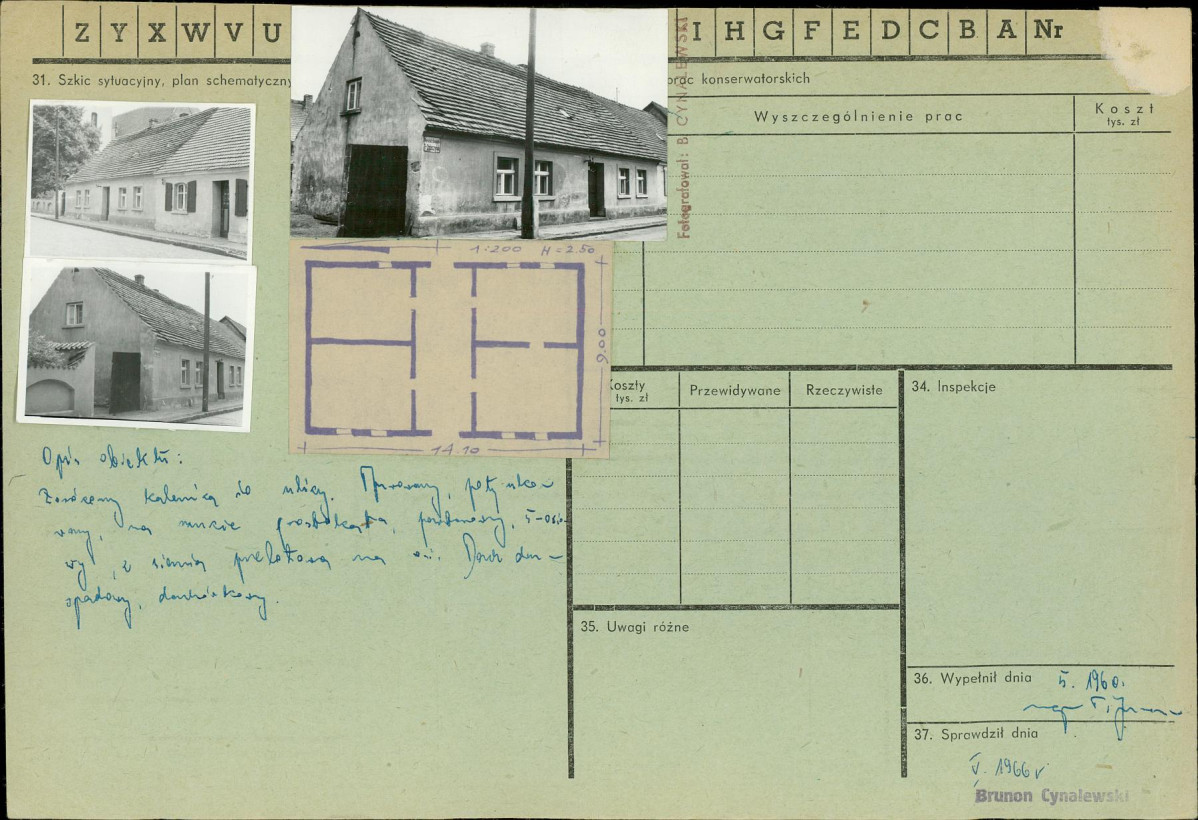 Z Y X W V U
I H G F E D C B A Nr
31. Szkic sytuacyjny, plan schematyczny
prac konserwatorskich
Fotografował: B. CYNALEWSKI
Wyszczególnienie prac
Koszt
tys. zł
1:200 H=2.50
9.00
14.10
Koszty
tys. zł
Przewidywane
Rzeczywiste
34. Inspekcje
Opis obiektu:
Zwrócony kalenicą do ulicy. Murowany, potynko-
wany, na rzucie prostokąta, parterowy, 5-osio-
wy, z sienią przelotową na osi. Dach dwu-
spadowy, dachówkowy.
35. Uwagi różne
36. Wypełnił dnia 5. 1960.
mgr
37. Sprawdził dnia
V. 1966 r
Brunon Cynalewski